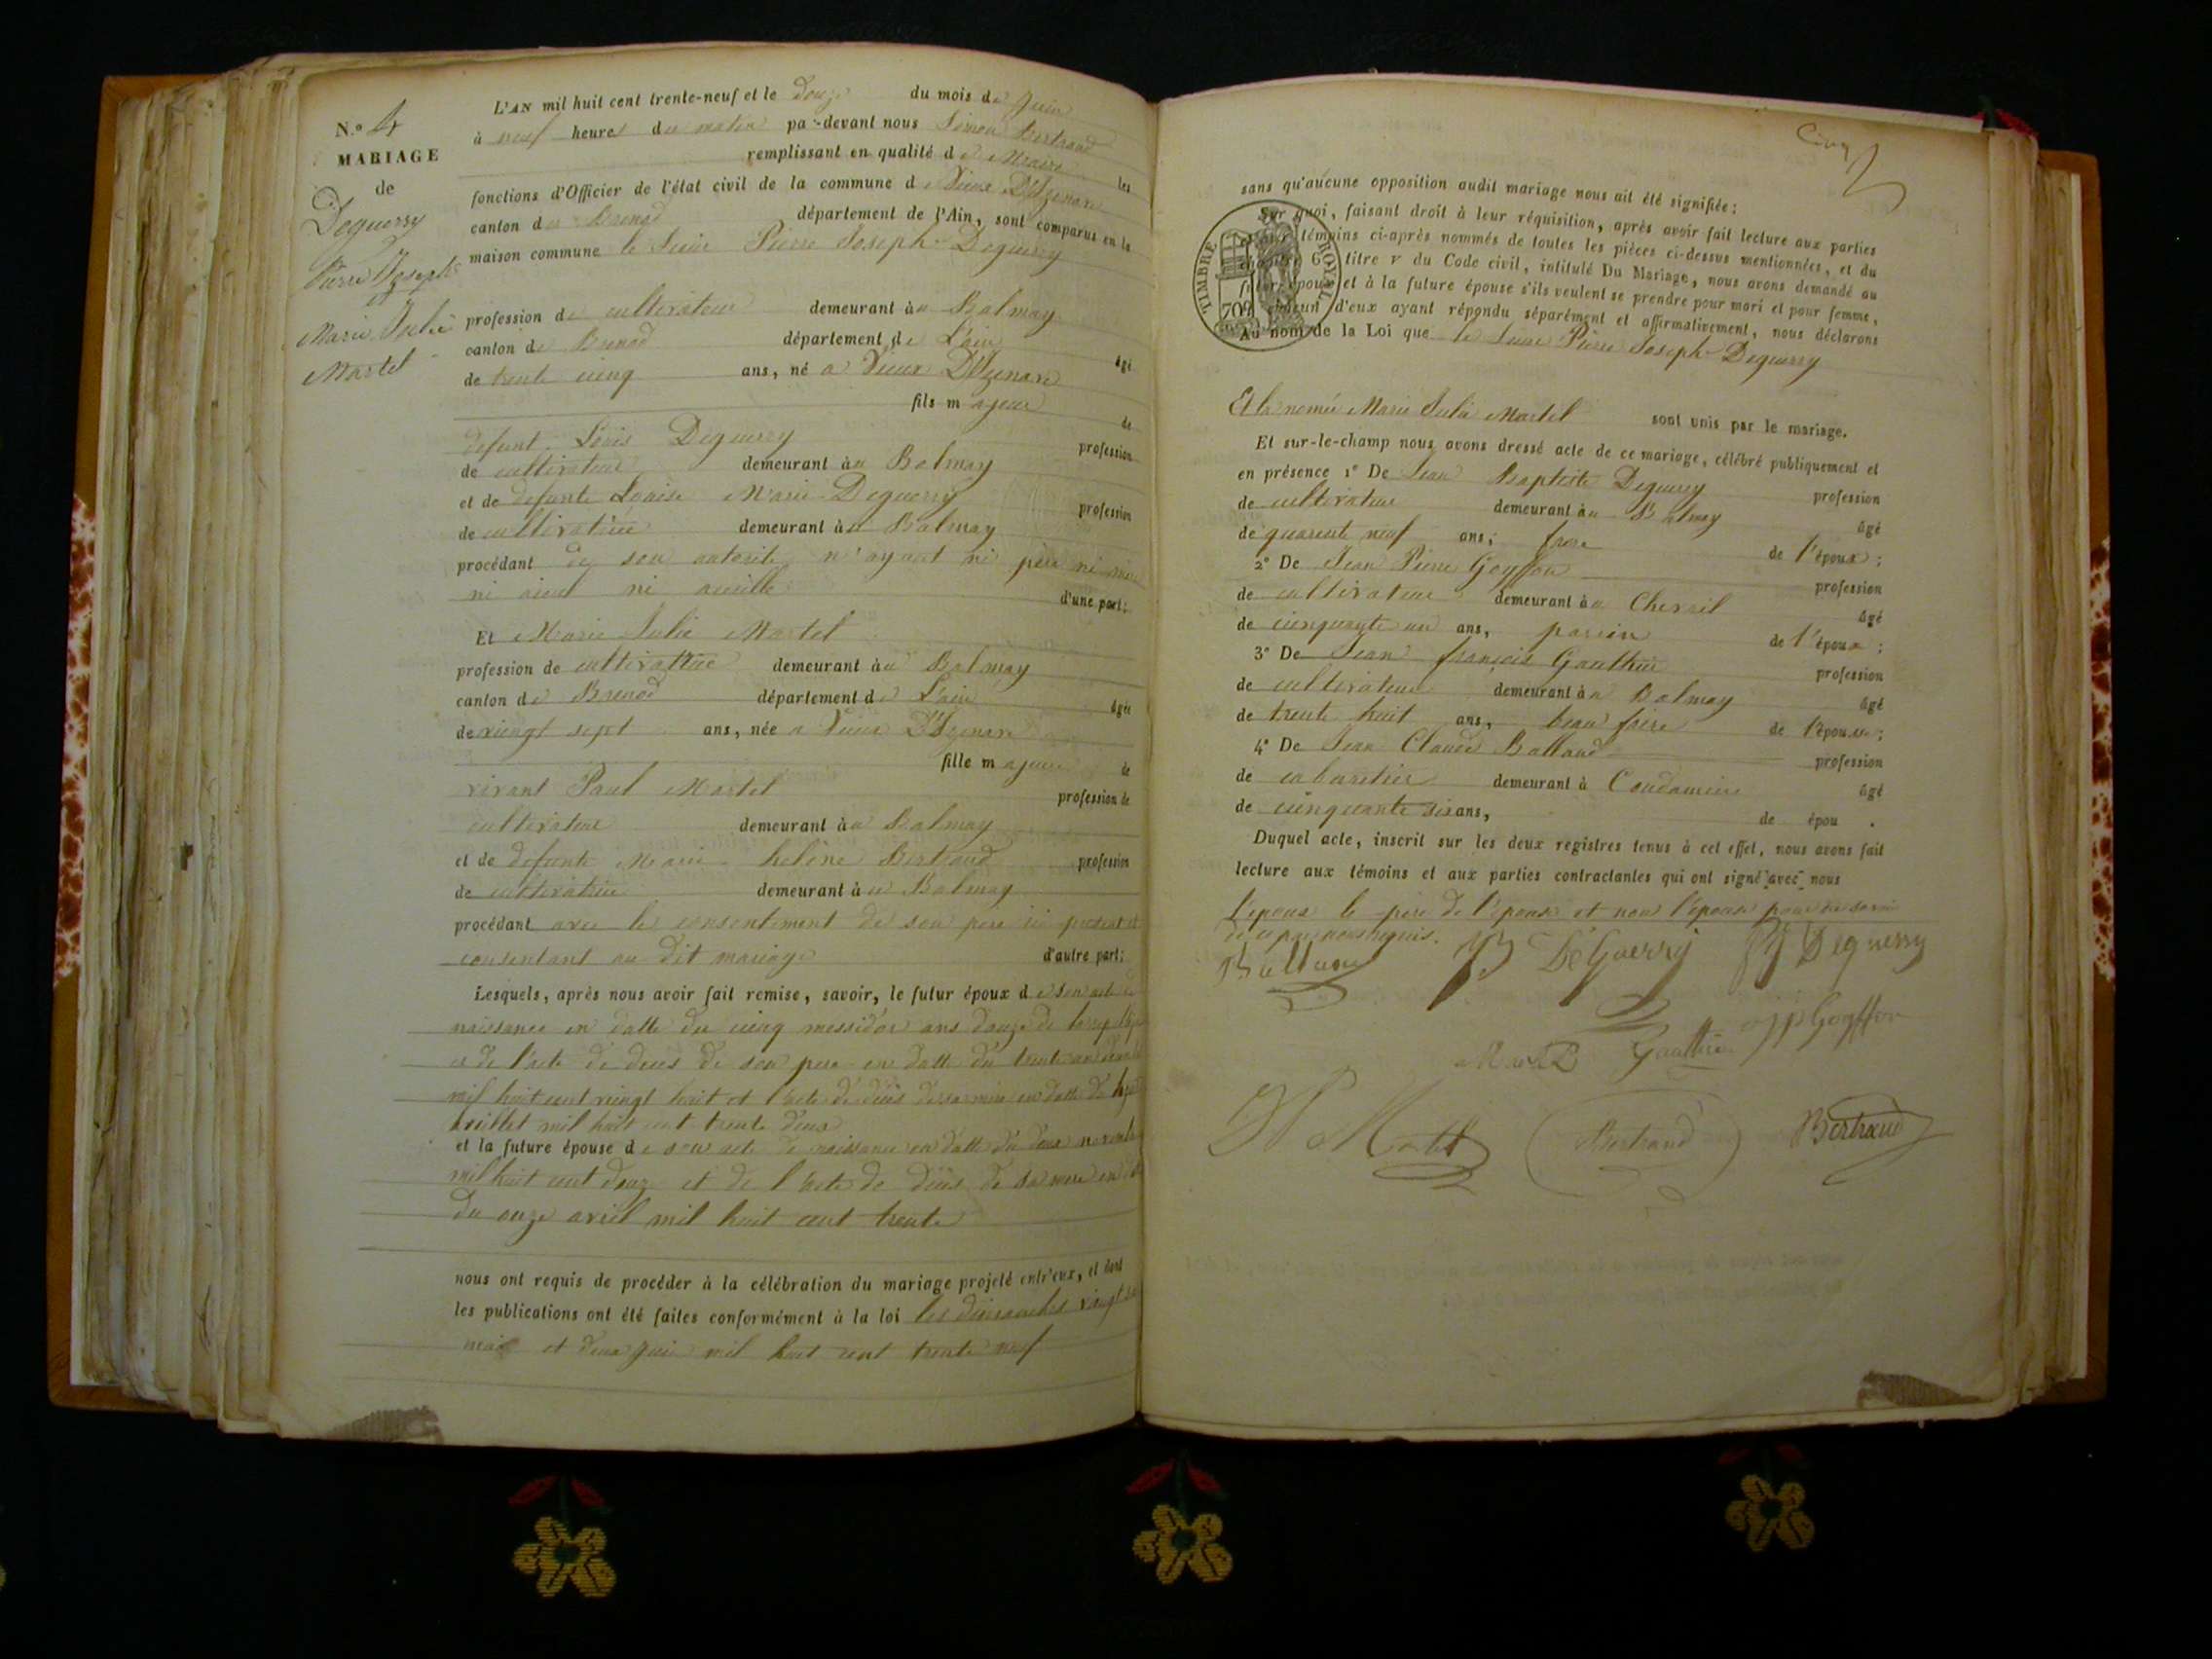 N.° 4
MARIAGE
de
Deguerry
Pierre Joseph
Marie Julie
Martel
L'AN mil huit cent trente-neuf et le douze du mois de juin
à neuf heures du matin par-devant nous Simon Bertrand
remplissant en qualité de Maire les
fonctions d'Officier de l'état civil de la commune de Vieux D'Izenave
canton de Brenod département de l'Ain, sont comparus en la
maison commune le sieur Pierre Joseph Deguerry
profession de cultivateur demeurant à Balmay
canton de Brenod département de L'ain âgé
de trente cinq ans, né a Vieux D'Izenave
fils majeur de
defunt Louis Deguerry profession
de cultivateur demeurant à Balmay
et de defunte Louise Marie Deguerry profession
de cultivatrice demeurant à Balmay
procédant de son autorité n'ayant ni père ni mere
ni aieul ni aieulle d'une part;
Et Marie Julie Martel
profession de cultivatrice demeurant à Balmay
canton de Brenod département de L'ain âgée
de vingt sept ans, née a Vieux D'Izenave
fille majeure de
vivant Paul Martel profession de
cultivateur demeurant à Balmay
et de defunte Marie heline Bertrand profession
de cultivatrice demeurant à Balmay
procédant avec le consentement de son pere ici présent et
consentant au dit mariage d'autre part;
Lesquels, après nous avoir fait remise, savoir, le futur époux de son acte de
naissance en datte du cinq messidor ans douze de
de l'acte de deces de son pere en datte du trente
mil huit cent vingt huit et l'acte de déces de sa mere en datte de
juillet mil huit cent trente deux
et la future épouse de son acte de naissance en datte du deux novembre
mil huit cent douze et de l'acte de déces de sa mere en
du onze avril mil huit cent trente
nous ont requis de procéder à la célébration du mariage projeté entr'eux, et dont
les publications ont été faites conformément à la loi les dimanches vingt six
mai et deux juin mil huit cent trente neuf
Cinq
sans qu'aucune opposition audit mariage nous ait été signifiée;
Sur quoi, faisant droit à leur réquisition, après avoir fait lecture aux parties
et aux témoins ci-après nommés de toutes les pièces ci-dessus mentionnées, et du
chapitre 6 titre v du Code civil, intitulé Du Mariage, nous avons demandé au
futur époux et à la future épouse s'ils veulent se prendre pour mari et pour femme,
chacun d'eux ayant répondu séparément et affirmativement, nous déclarons
Au nom de la Loi que le sieur Pierre Joseph Deguerry
TIMBRE ROYAL
70c
Et la nomée Marie Julie Martel sont unis par le mariage.
Et sur-le-champ nous avons dressé acte de ce mariage, célébré publiquement et
en présence 1° De Jean Baptiste Deguerry profession
de cultivateur demeurant à Balmay âgé
de quarente neuf ans, frere de l'époux;
2° De Jean Pierre Goyffon profession
de cultivateur demeurant à Chevril âgé
de cinquante un ans, parrin de l'époux;
3° De Jean françois Gauthier profession
de cultivateur demeurant à Balmay âgé
de trente huit ans, beau frere de l'épouse;
4° De Jean Claude Balland profession
de cabaretier demeurant à Condamine âgé
de cinquante six ans, de épou .
Duquel acte, inscrit sur les deux registres tenus à cet effet, nous avons fait
lecture aux témoins et aux parties contractantes qui ont signé avec nous
l'epoux le pere de l'epouse et non l'épouse pour ne savoir
de ce par nous requis.
Balland JB DéGuerry PJ Deguerry
Martel Gauthier jp Goyffon
P Martel Bertrand Bertrand